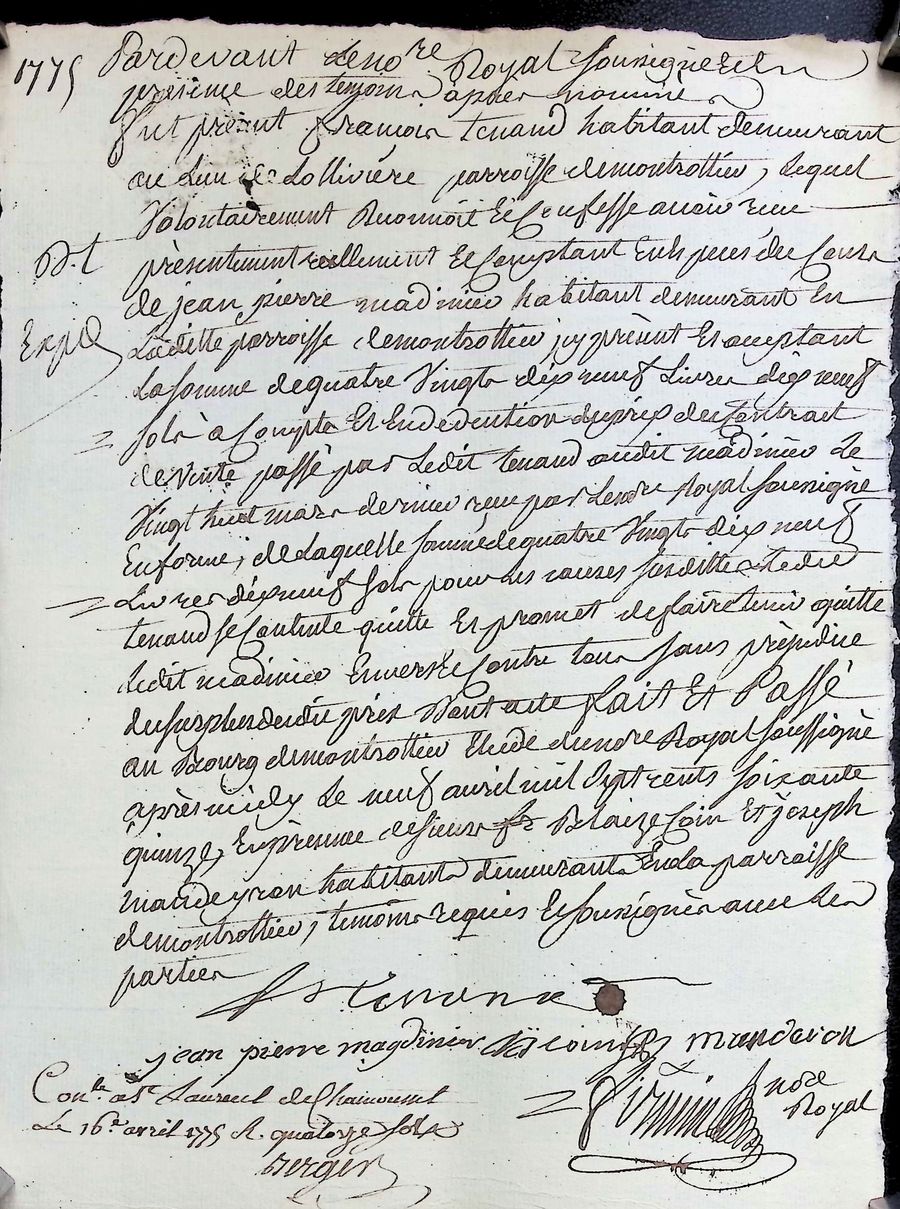 1775
Pardevant le no.re Royal soussigné et en
présence des temoins après nommés
fut présent françois tenaud habitant demeurant
au lieu de Lollivière parroisse de montrottier, Lequel
Volontairement Reconnoit et Confesse avoir reçu
D.t
présentement réellement et Comptant en Especes de Cours
de jean pierre madinier habitant demeurant En
Expé
Laditte parroisse de montrottier icy présent et acceptant
La somme de quatre Vingts dix neuf Livres dix neuf
sols à Compte Et En déduction du prix du Contract
de Vente passé par Ledit tenaud audit madinier Le
Vingt huit mars dernier reçu par Le no.re Royal soussigné
En forme, de Laquelle somme de quatre Vingts dix neuf
Livres dix neuf sols pour les causes susdittes Ledit
tenaud se Contente quitte Et promet de faire tenir quitte
Ledit madinier Envers et Contre tous sans préjudice
du surplus dudit prix dont acte fait Et Passé
au Bourg de montrottier Etude du no.re Royal soussigné
après midy Le neuf avril mil sept cents soixante
quinze, En présence de sieurs Blaize Coin Et joseph
mandeyron habitants demeurants En la parroisse
de montrottier, temoins requis Et soussignés avec Les
parties
f tenaud
jean pierre magdinier Coin J manderon
Con.lé à S.t Laurent de Chamousset
Le 16.e avril 1775 R. quatorze sols
Berger
no.re
Royal